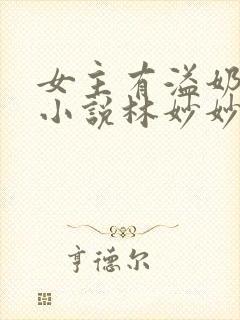 女主有溢奶
小说林妙妙
亨德尔